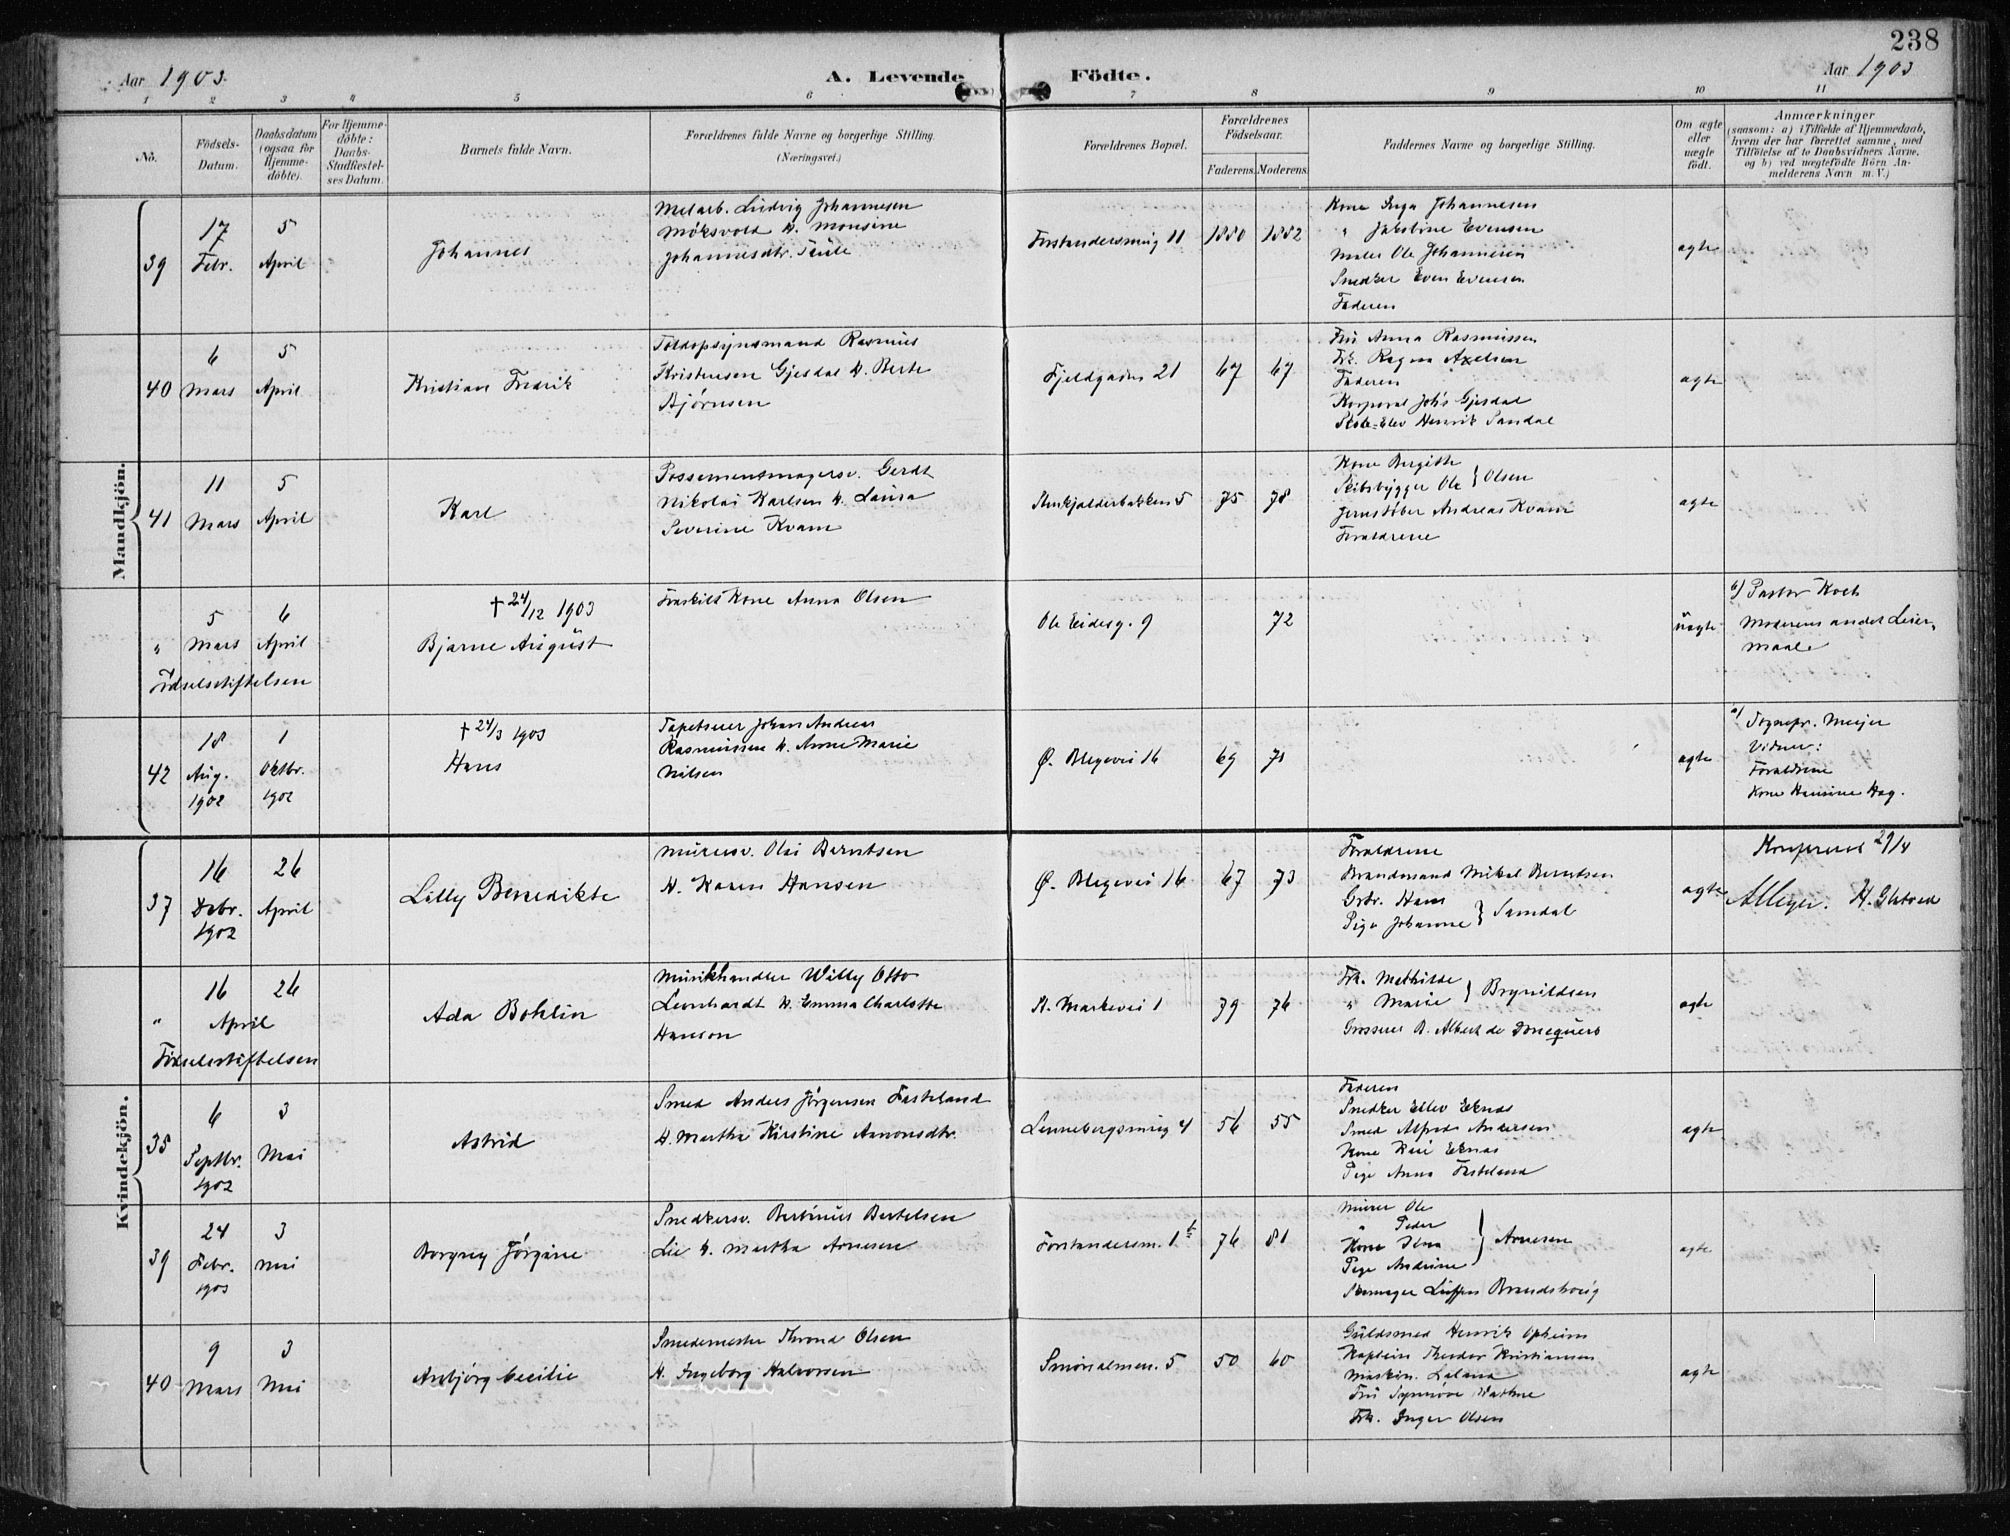 238
Aar 1903.
A. Levende Födte.
Aar 1903
1 2 3 4 5 6 7 8 9 10 11
No.
Födsels-Datum.
Daabsdatum (ogsaa for Hjemme-döbte).
For Hjemme-döbte: Daabs-Stadfæstel-ses Datum.
Barnets fulde Navn.
Forældrenes fulde Navne og borgerlige Stilling.
(Næringsvei.)
Forældrenes Bopæl.
Forældrenes Födselsaar.
Faderens. Moderens.
Faddernes Navne og borgerlige Stilling.
Om ægte eller uægte födt.
Anmærkninger
(saasom: a) i Tilfælde af Hjemmedaab,
hvem der har forrettet samme, med
Tilföielse af to Daabsvidners Navne,
og b) ved uægtefödte Börn An-
melderens Navn m. V.)
Mandkjön.
39
17 Febr.
5 April
Johannes
Metarb. Ludvig Johannesen
Möksvold H. Monsine
Johannesdtr.
Forstandersmug 11
1880 1882
Kone Inga Johannesen
" Jakobine Evensen
Maler Ole Johannesen
Snedker Even Evensen
Faderen
ægte
40
6 Mars
5 April
Kristian Fredrik
Toldopsynsmand Rasmus
Kristensen Gjesdal H. Berte
Bjørnsen
Fjeldgaden 21
67 67
Fru Anna Rasmussen
Frk. Ragna Axelsen
Faderen
Korporal Johs Gjesdal
Skole-Elev Henrik Sandal
ægte
41
11 Mars
5 April
Karl
Possementmagersv. Gerdt
Nikolai Karlsen H. Laura
Severine Kvam
Stenkjælderbakken 5
75 78
Kone Birgitte
Skibsbygger Ole } Olsen
Jernstøber Andreas Kvam
Forældrene
ægte
"
5 Mars
6 April
Fødselsstiftelsen
† 24/12 1903
Bjarne August
Fraskilt Kone Anna Olsen
Ole Eidesg. 9
72
uægte
b) Pastor Koch
Moderens andet Leier-
maal
42
18 Aug. 1902
1 Oktbr. 1902
† 24/3 1903
Hans
Tapetserer Johan Andreas
Rasmussen H. Anne Marie
Nilsen
Ø. Blegevei 16
69 71
ægte
a) Sognepr. Meyer
Vidner:
Forældrene
Kone Hansine Hag.
Kvindekjön.
37
16 Debr. 1902
26 April
Lilly Benedikte
Murersv. Olai Berntsen
H. Karen Hansen
Ø. Blegevei 16
67 73
Forældrene
Brandmand Mikal Berntsen
Grbr. Hans
Pige Johanne } Samdal
ægte
Konfereret 29/4
AMeyer. H. Gletved
"
16 April
26
Fødselsstiftelsen
Ada Bohlin
Musikhandler Willy Otto
Leonhardt H. Emma Charlotte
Hanson
St. Markevei 1
79 76
Frk. Mathilde
" Marie } Brynildsen
Grosserer B. Albert de
ægte
38
6 Septbr. 1902
3 Mai
Astrid
Smed Anders Jørgensen Fasteland
H. Martha Kirstine Aanonsdtr.
Lennebergsmug 4
56 55
Faderen
Snedker Ellev Eknas
Smed Alfred Andersen
Kone Eknas
Pige Anna Fasteland
ægte
39
24 Febr. 1903
3 Mai
Borgny Jørgine
Snedkersv. Bertinius Bertelsen
Lie H. Martha Arnesen
Forstandersm. 1 b
76 81
Murer Ole
" Peder
Kone
Pige Andrine } Arnesen
Skomager Brandshoug
ægte
40
9 Mars
3 Mai
Asbjørg Cecilie
Smedemester Thrond Olsen
H. Ingeborg Halvorsen
Smørsalmen. 5
50 60
Guldsmed Henrik Opheim
Kaptein Theodor Kristiansen
Maskin.
Fru Synnøve
Frk. Inger Olsen
ægte